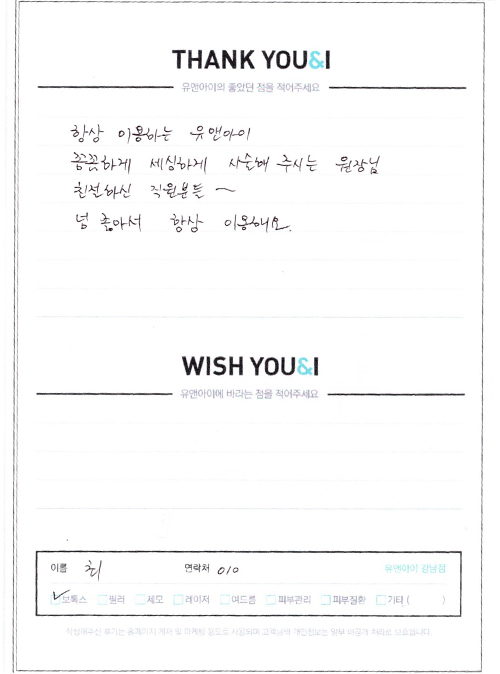 THANK YOU&I
유앤아이의 좋았던 점을 적어주세요
항상 이용하는 유앤아이
꼼꼼하게 세심하게 시술해 주시는 원장님
친절하신 직원분들 ~
넘 좋아서 항상 이용해요.
WISH YOU&I
유앤아이에 바라는 점을 적어주세요
이름 최 연락처 010 유앤아이 강남점
보톡스 필러 제모 레이저 여드름 피부관리 피부질환 기타 ( )
작성해주신 후기는 홈페이지 게재 및 마케팅 용도로 사용되며 고객님의 개인정보는 일부 비공개 처리로 보호됩니다.